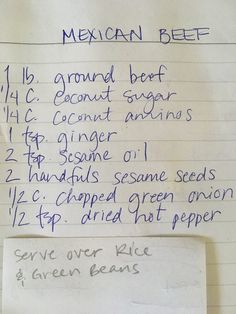 MEXICAN BEEF
1 lb. ground beef
1/4 c. coconut sugar
1/4 c. coconut aminos
1 tsp. ginger
2 tsp. sesame oil
2 handfuls sesame seeds
1/2 c. chopped green onion
1/2 tsp. dried hot pepper
serve over Rice
& Green Beans